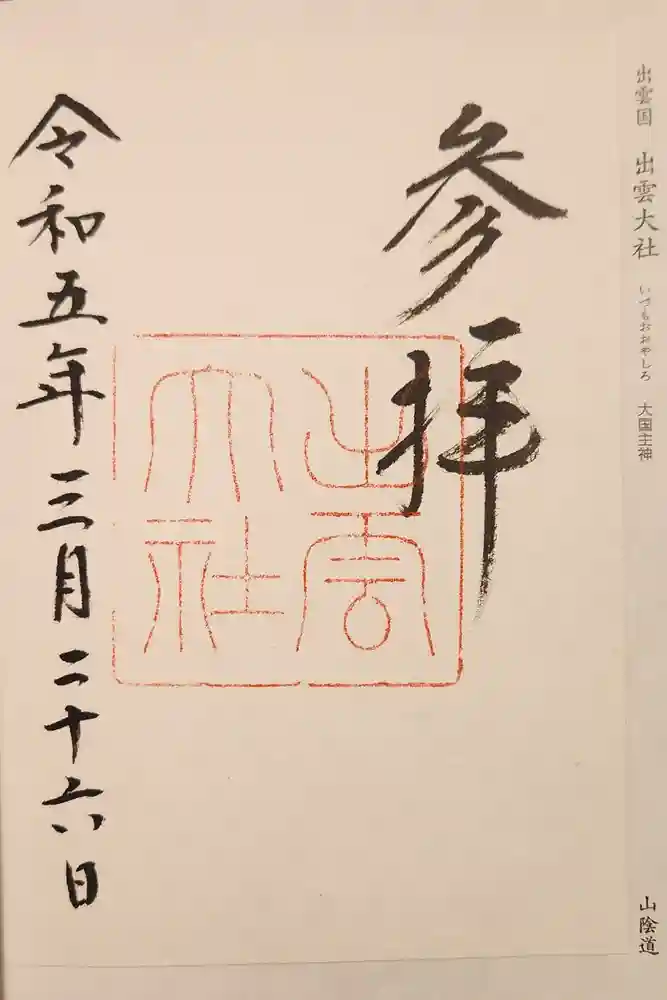 出雲国 出雲大社 いづもおおやしろ 大国主神
山陰道
参拝
出雲
大社
令和五年三月二十六日